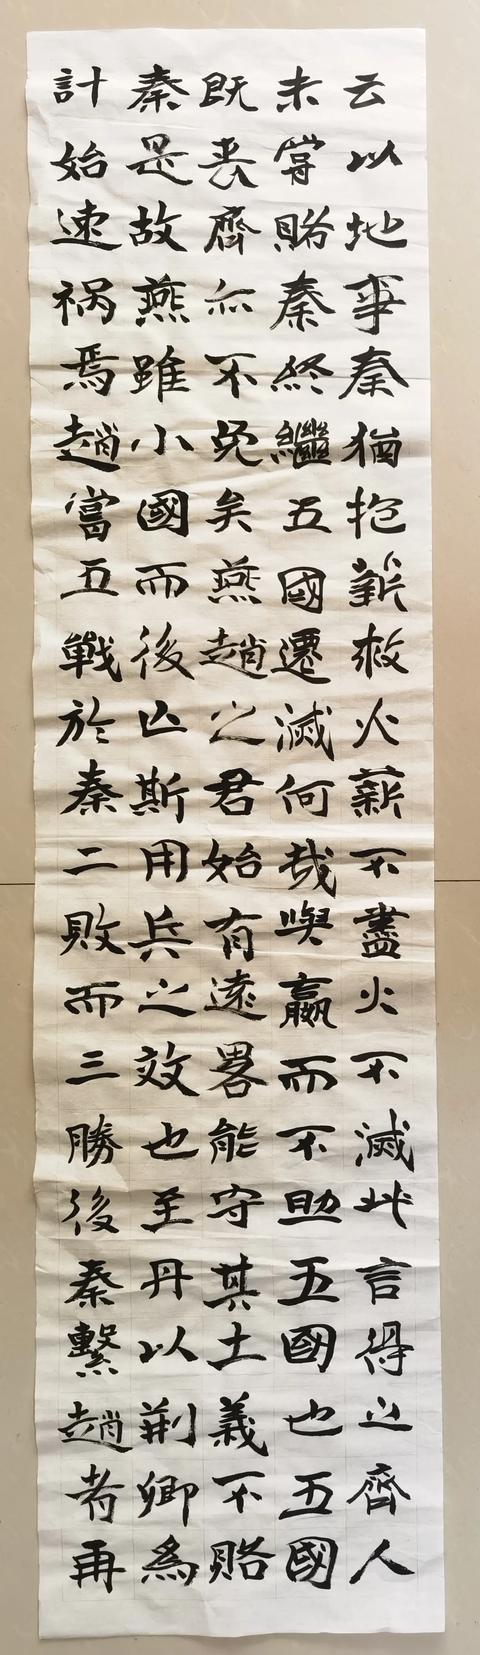 云以地事秦猶抱薪救火薪不盡火不滅此言得之齊人
未嘗賂秦終繼五國遷滅何哉與嬴而不助五國也五國
既喪齊亦不免矣燕趙之君始有遠畧能守其土義不賂
秦是故燕雖小國而後亡斯用兵之效也至丹以荆卿為
計始速祸焉趙嘗五戰於秦二敗而三勝後秦繫趙者再